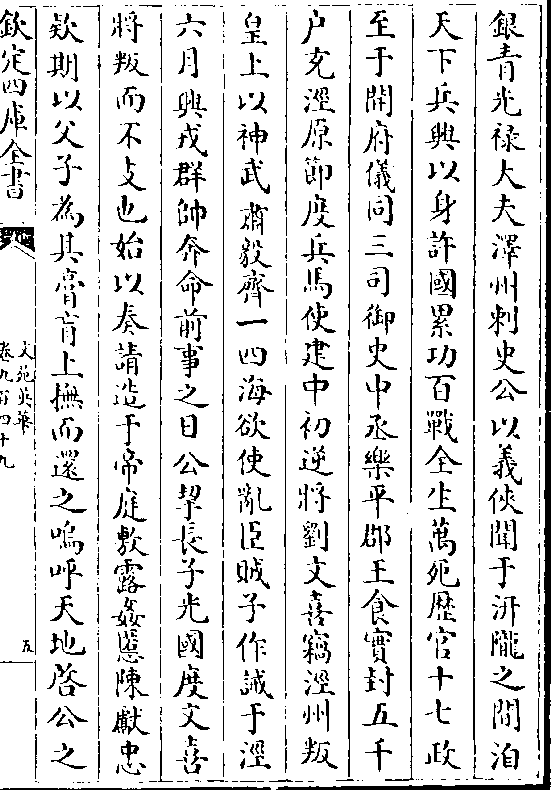 銀青光禄大夫澤州刺史公以義俠聞于汧隴之間洎
天下兵興以身許國累功百戰全生萬死歴官十七政
至于開府儀同三司御史中丞樂平郡王食實封五千
户充涇原節度兵馬使建中初逆將劉文喜竊涇州叛
皇上以神武肅毅齊一四海欲使亂臣賊子作誡于涇
六月興戎群帥奔命前事之日公挈長子光國度文喜
將叛而不攴也始以奏請造于帝庭敷露姦慝陳獻忠
欵期以父子為其膏肓上撫而還之嗚呼天地啓公之
欽定四庫全書
文苑英華
卷九百四十九
五